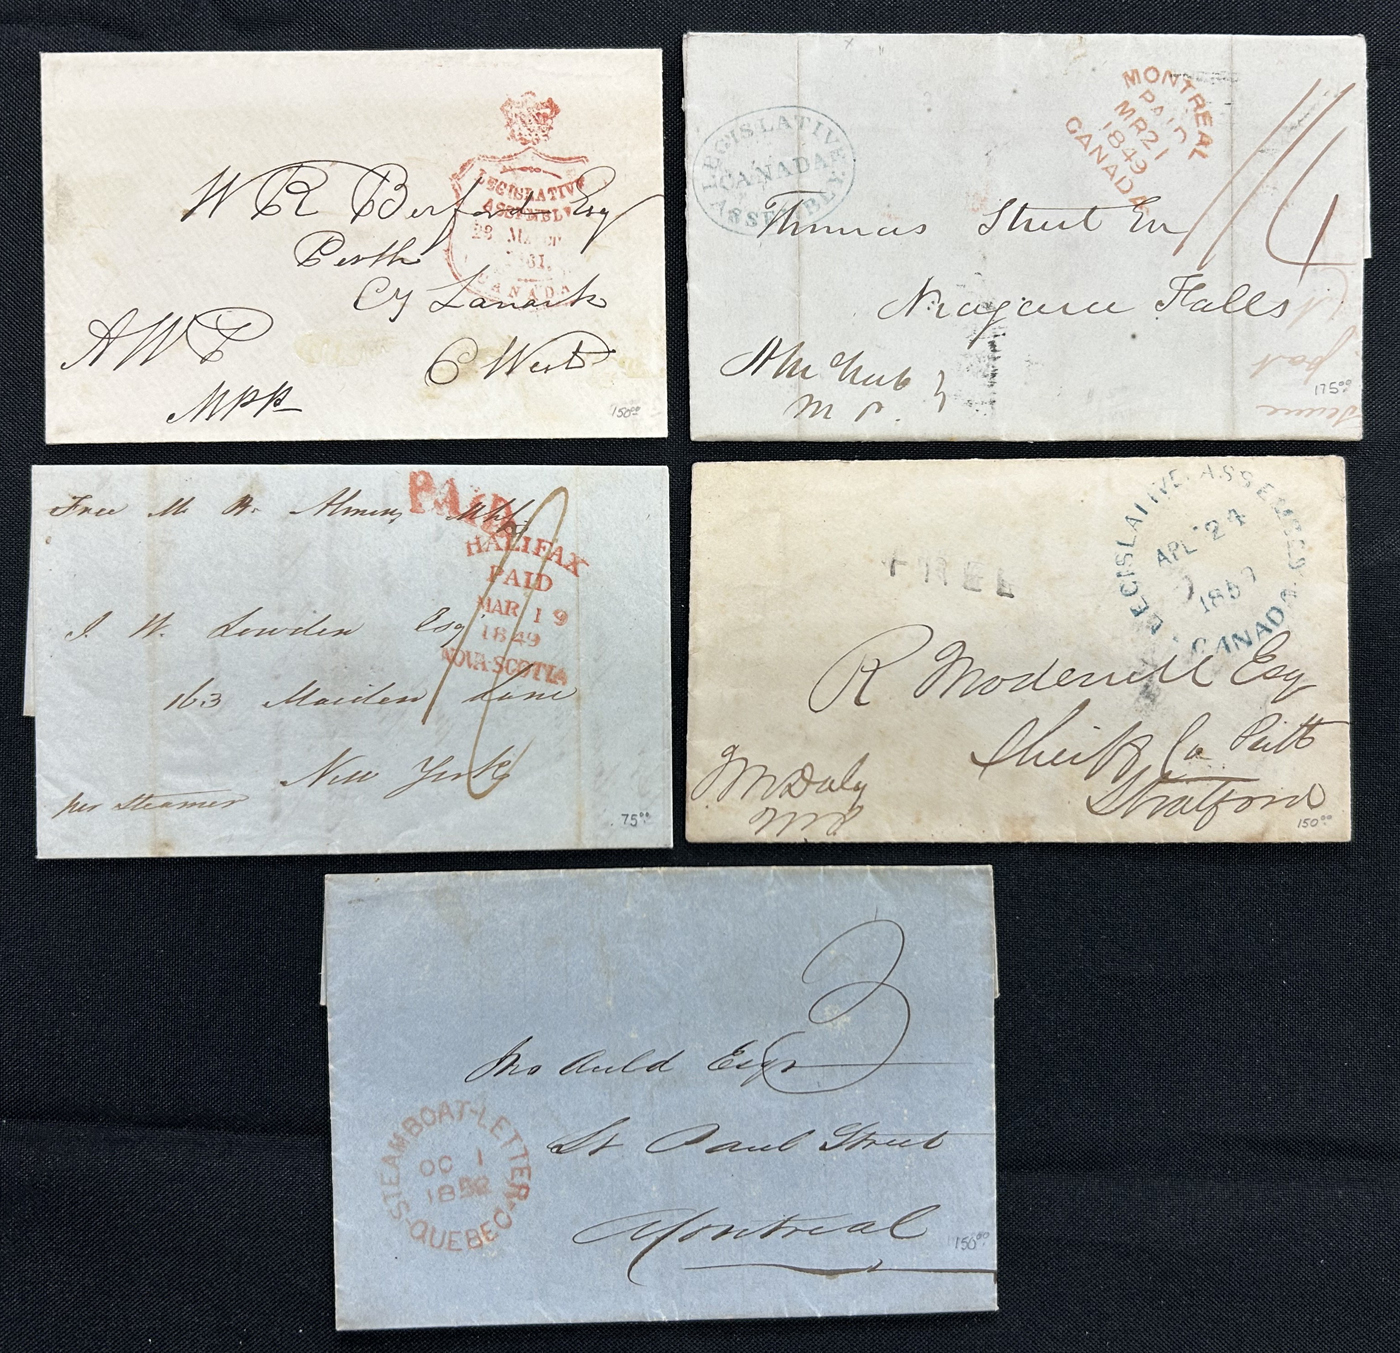 W R Berford Esq
Perth
Cy Lanark
C West
A W P
MPP
LEGISLATIVE
ASSEMBLY
28 MARCH
1861.
CANADA
150⁰⁰
LEGISLATIVE
CANADA
ASSEMBLY
MONTREAL
PAID
MR 21
1849
CANADA
Thomas Street Esq
Niagara Falls
M P
175⁰⁰
Free M. B. Almon
PAID
HALIFAX
PAID
MAR 19
1849
NOVA-SCOTIA
J. W. Lowden Esq
163 Maiden Lane
New York
per Steamer
75⁰⁰
FREE
LEGISLATIVE ASSEMBLY
APL 24
185
CANADA
R Moderwell Esq
Sheriff Co Perth
Stratford
T M Daly
150⁰⁰
3
Jno Auld Esqr
St Paul Street
Montreal
STEAMBOAT-LETTER
OC 1
1852
QUEBEC
150⁰⁰